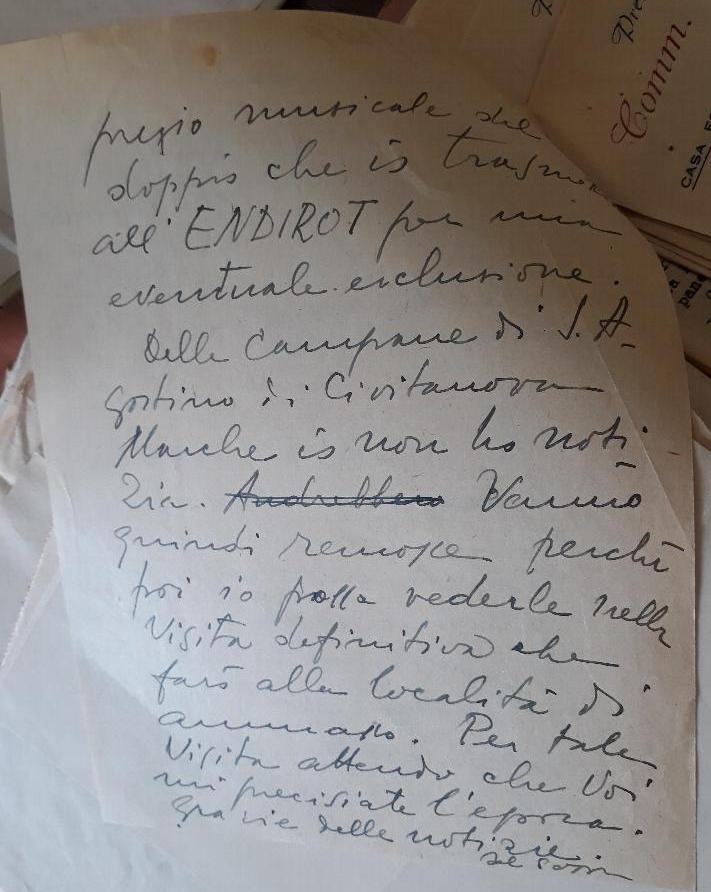 Pre
Comm.
CASA
pregio musicale che
doppio che io
all'ENDIROT per una
eventuale esclusione.
Delle Campane di S. A-
gostino di Civitanova
Marche io non ho noti
zia. Andrebbero Vanno
quindi remosse perchè
poi io possa vederle nella
visita definitiva che
farò alla località di
ammasso. Per tale
visita attendo che Voi
mi precisiate l'epoca.
Grazie delle notizie